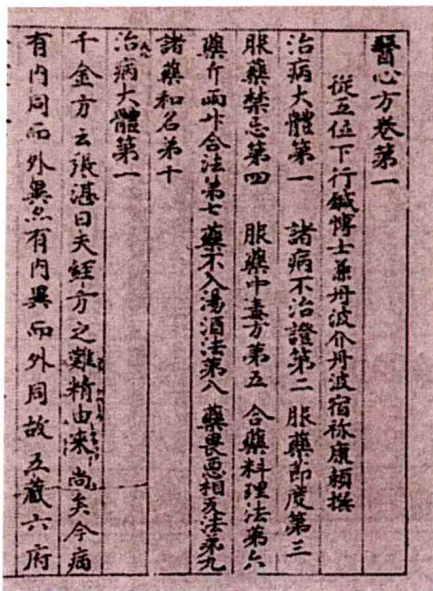 醫心方卷第一
從五位下行鍼博士兼丹波介丹波宿祢康頼撰
治病大體第一 諸病不治證第二 服藥節度第三
服藥禁忌第四 服藥中毒方第五 合藥料理法第六
藥斤兩升合法第七 藥不入湯酒法第八 藥畏惡相反法第九
諸藥和名第十
治病大體第一
千金方云張湛曰夫經方之難精由来尚矣今病
有内同而外異亦有内異而外同故五藏六府